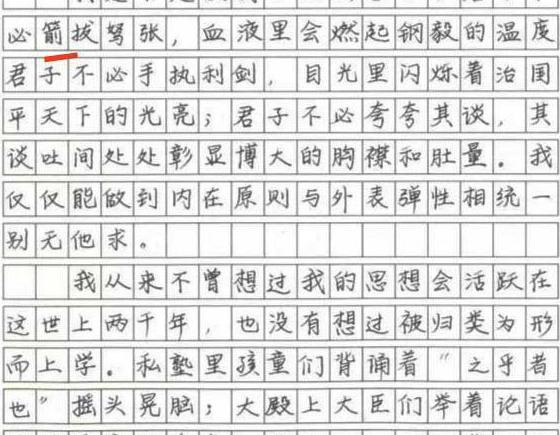 必箭拔驽张，血液里会燃起钢毅的温度
君子不必手执利剑，目光里闪烁着治国
平天下的光亮；君子不必夸夸其谈，其
谈吐间处处彰显博大的胸襟和肚量。我
仅仅能做到内在原则与外表弹性相统一
别无他求。
我从来不曾想过我的思想会活跃在
这世上两千年，也没有想过被归类为形
而上学。私塾里孩童们背诵着“之乎者
也”摇头晃脑；大殿上大臣们举着论语